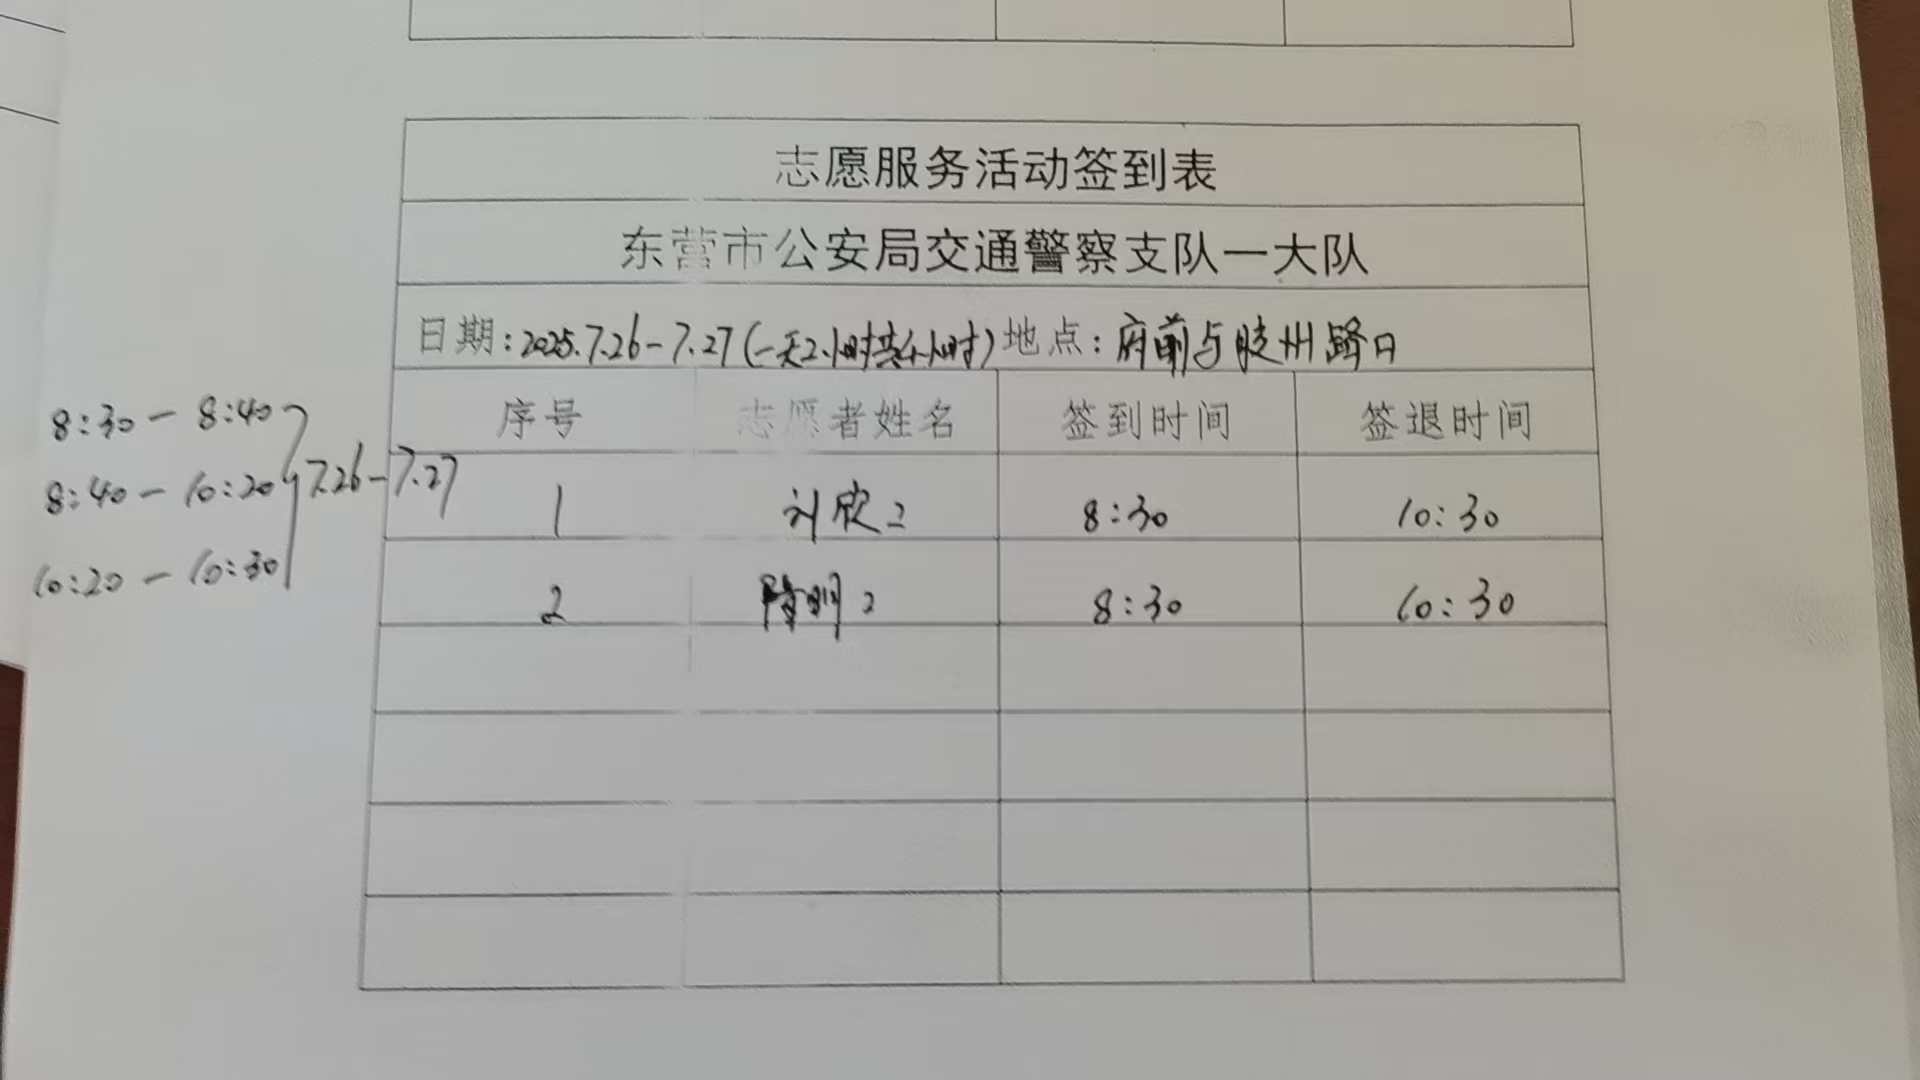 志愿服务活动签到表
东营市公安局交通警察支队一大队
日期:2025.7.26-7.27(一天2小时共4小时)地点:府前与胶州路口
序号 志愿者姓名 签到时间 签退时间
1 刘欣 2 8:30 10:30
2 隋明 2 8:30 10:30
8:30-8:40
8:40-10:20
10:20-10:30
7.26-7.27